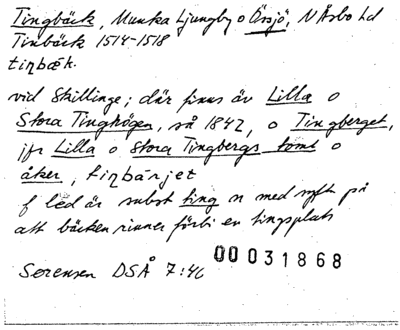 Tingbäck, Munka Ljungby o Össjö, N Åsbo hd
Tinbäck 1514-1518
tiŋbæk.
vid Skillinge; där finns äv Lilla o
Stora Tinghögen, så 1842, o Tingberget,
jfr Lilla o Stora Tingbergs tomt o
åker, tiŋbärjet
f led är subst ting n med syft på
att bäcken rinner förbi en tingsplats
00031868
Sørensen DSÅ 7:46